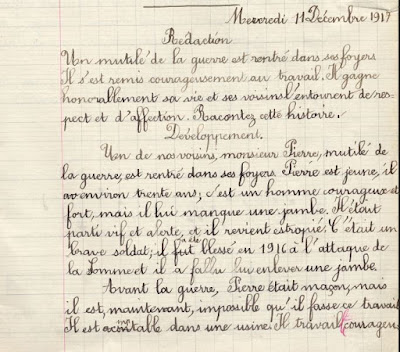 Mercredi 11 Décembre 1917
Rédaction
Un mutilé de la guerre est rentré dans ses foyers
Il s'est remis courageusement au travail. Il gagne
honorallement sa vie et ses voisins l'entourent de res-
pect et d'affection. Racontez cette histoire.
Développement.
Un de nos voisins, monsieur Pierre, mutilé de
la guerre, est rentré dans ses foyers Pierre est jeune, il
a environ trente ans; c'est un homme courageux et
fort, mais il lui manque une jambe. Il était
parti vif et alerte, et il revient estropié. C'était un
brave soldat; il a été blessé en 1916 à l'attaque de
la Somme et il a fallu lui enlever une jambe.
Avant la guerre, Pierre était maçon, mais
il est, maintenant, impossible qu'il fasse ce travail
Il est comptable dans une usine. Il travail courageu